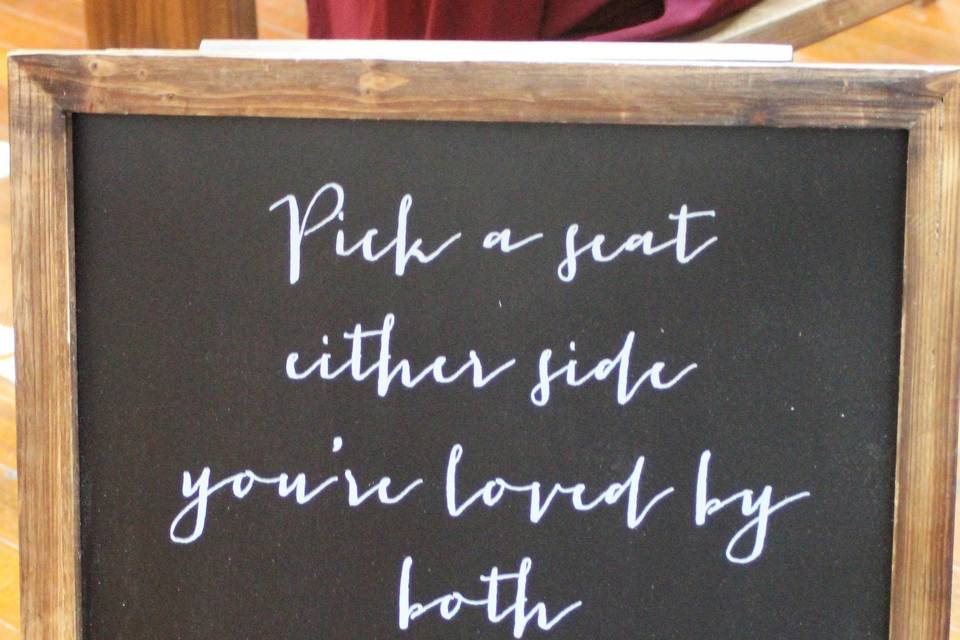 Pick a seat
either side
you're loved by
both